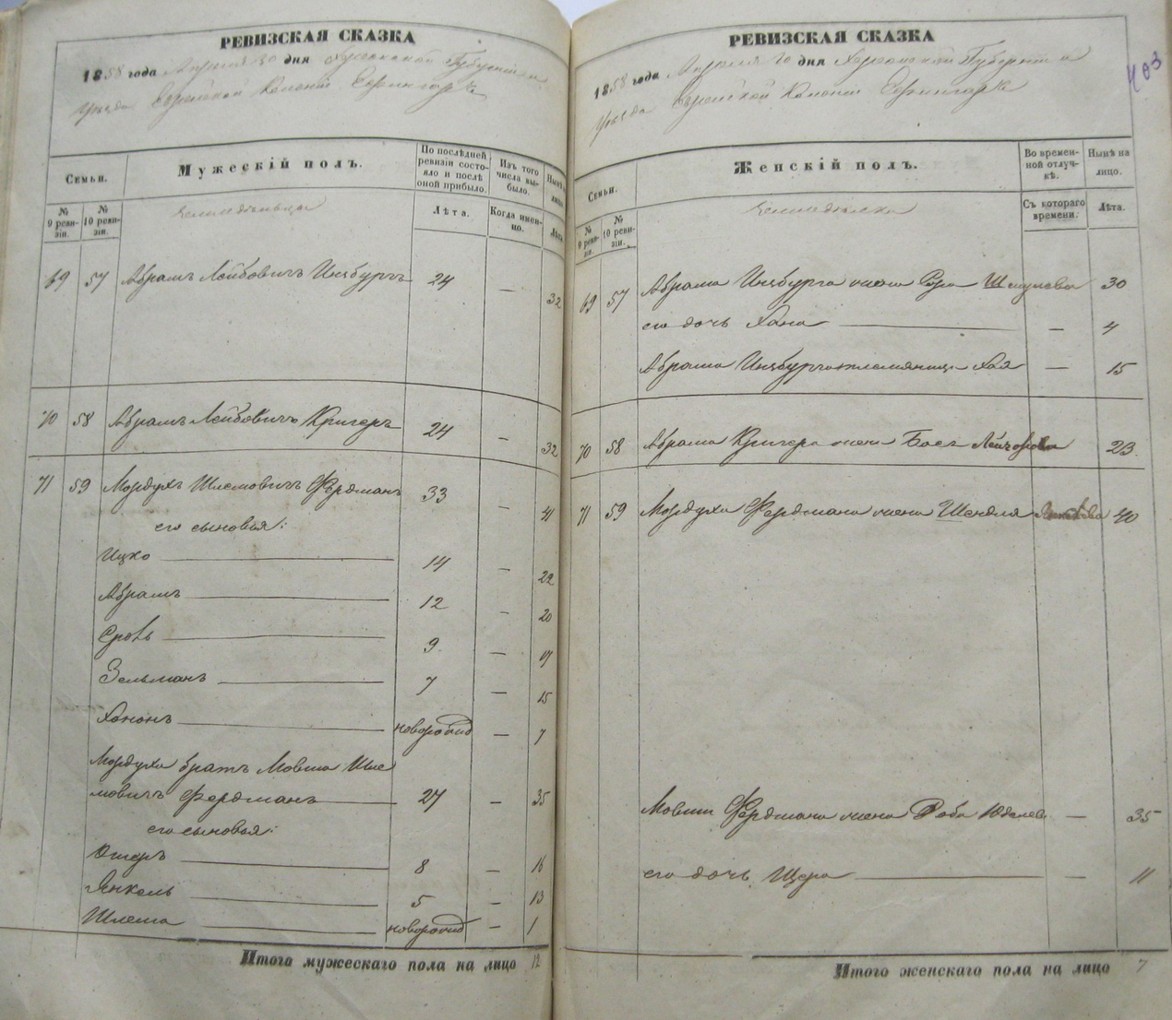 РЕВИЗСКАЯ СКАЗКА
1858 года Апреля 30 дня Херсонской Губернии
уезда Еврейской Колонии
Семьи.
№ 9 ревизіи.
№ 10 ревизіи.
Мужескій полъ.
По послѣдней ревизіи состояло и послѣ оной прибыло.
Лѣта.
Изъ того числа выбыло.
Когда именно.
Нынѣ на лицо.
Лѣта.
69 57 Абрамъ Лейбовичъ Инзбургъ 24 — 32
70 58 Абрамъ Лейбовичъ Кригеръ 24 — 32
71 59 Мордухъ Шлемовичъ Фердманъ 33 — 41
его сыновья:
Ицко 14 — 22
Абрамъ 12 — 20
Сроль 9 — 17
Зельманъ 7 — 15
Ханонъ новорожд — 7
Мордуха братъ Мовша Шле
мовичъ Фердманъ 27 — 35
его сыновья:
Ошеръ 8 — 16
Янкель 5 — 13
Шлема новорожд — 1
Итого мужескаго пола на лицо 12
РЕВИЗСКАЯ СКАЗКА
403
1858 года Апреля 30 дня Херсонской Губернии
уезда Еврейской Колонии
Семьи.
№ 9 ревизіи.
№ 10 ревизіи.
Женскій полъ.
Во временной отлучкѣ.
Съ котораго времени.
Нынѣ на лицо.
Лѣта.
69 57 Абрама Инзбурга жена Сура Шмулева 30
его дочь Хана — 4
Абрама Инзбурга племяница Хая — 15
70 58 Абрама Кригера жена Бася 23
71 59 Мордуха Фердмана жена Шендля 40
Мовши Фердмана жена Юделев — 35
его дочь — 11
Итого женскаго пола на лицо 7